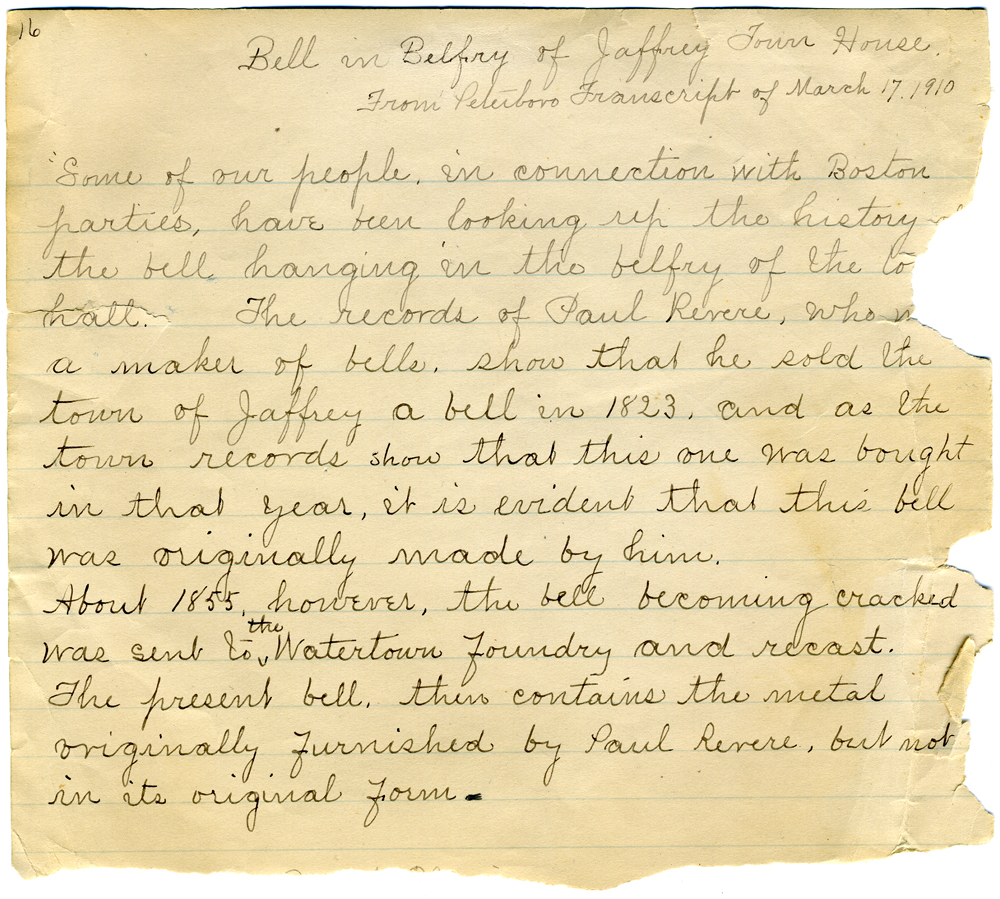 16
Bell in Belfry of Jaffrey Town House.
From Peterboro Transcript of March 17. 1910
"Some of our people, in connection with Boston
parties, have been looking up the history
the bell hanging in the belfry of the to
hall. The records of Paul Revere, who w
a maker of bells, show that he sold the
town of Jaffrey a bell in 1823, and as the
town records show that this one was bought
in that year, it is evident that this bell
was originally made by him.
About 1855, however, the bell becoming cracked
the
was sent to Watertown Foundry and recast.
The present bell, then contains the metal
originally furnished by Paul Revere, but not
in its original form.